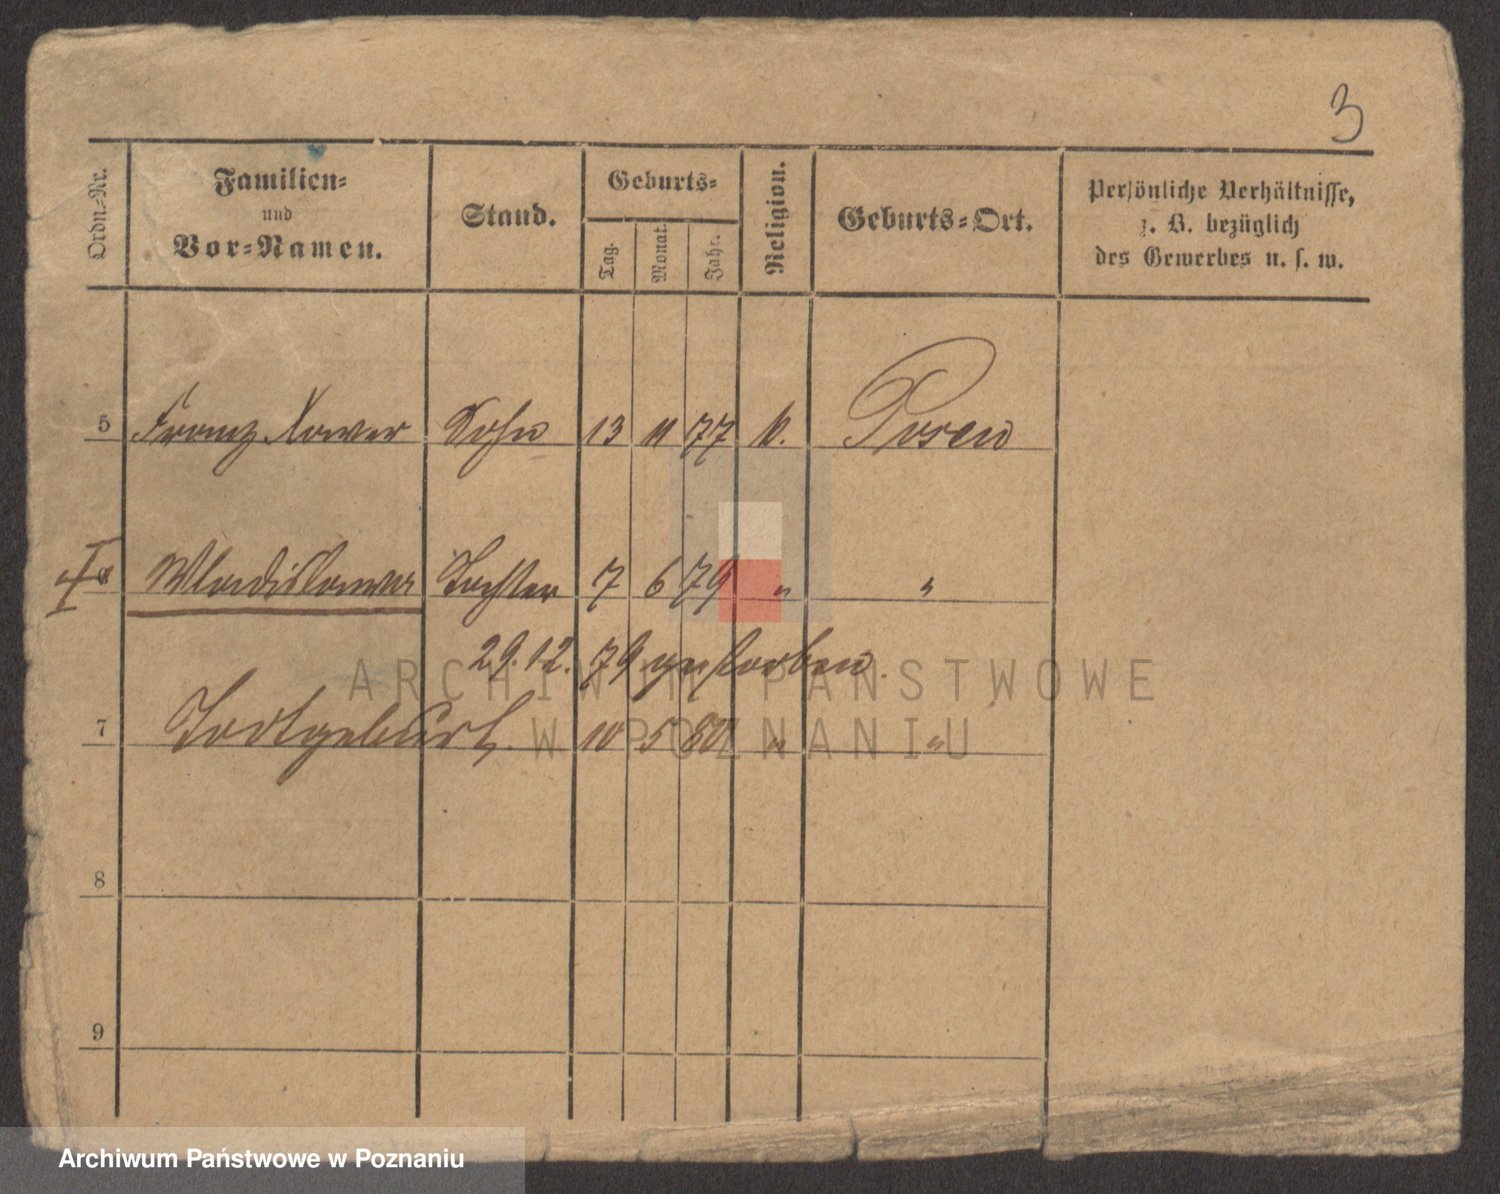 3
Ordn.-Nr.
Familien-
und
Vor-Namen.
Stand.
Geburts-
Tag.
Monat.
Jahr.
Religion.
Geburts-Ort.
Persönliche Verhältnisse,
z. B. bezüglich
des Gewerbes u. s. w.
5 Franz Xawer Sohn 13 11 77 k. Posen
Wladislawa Tochter 7 6 79 " "
29.12.79 gestorben.
7 Todtgeburt. 10 5 80 " "
8
9
ARCHIWUM PAŃSTWOWE
W POZNANIU
Archiwum Państwowe w Poznaniu